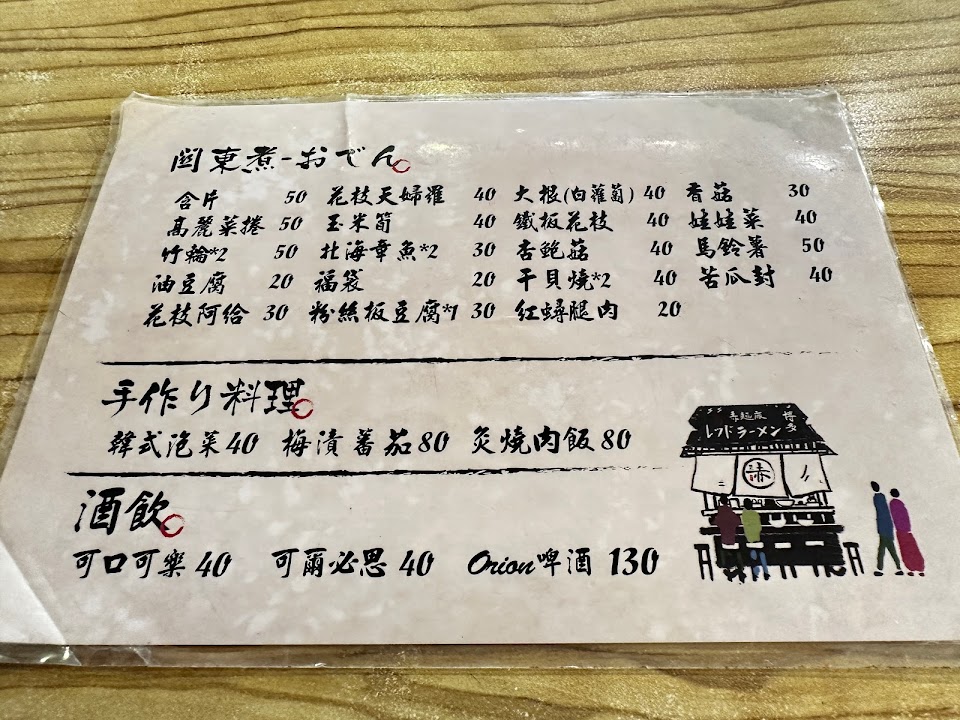 関東煮-おでん
含片 50 花枝天婦羅 40 大根(白蘿蔔) 40 香菇 30
高麗菜捲 50 玉米筍 40 鐵板花枝 40 娃娃菜 40
竹輪*2 50 北海章魚*2 30 杏鮑菇 40 馬鈴薯 50
油豆腐 20 福袋 20 干貝燒*2 40 苦瓜封 40
花枝阿給 30 粉絲板豆腐*1 30 紅蟳腿肉 20
手作り料理
韓式泡菜40 梅漬蕃茄80 炙燒肉飯80
酒飲
可口可樂 40 可爾必思 40 Orion啤酒 130
レッドラーメン
赤